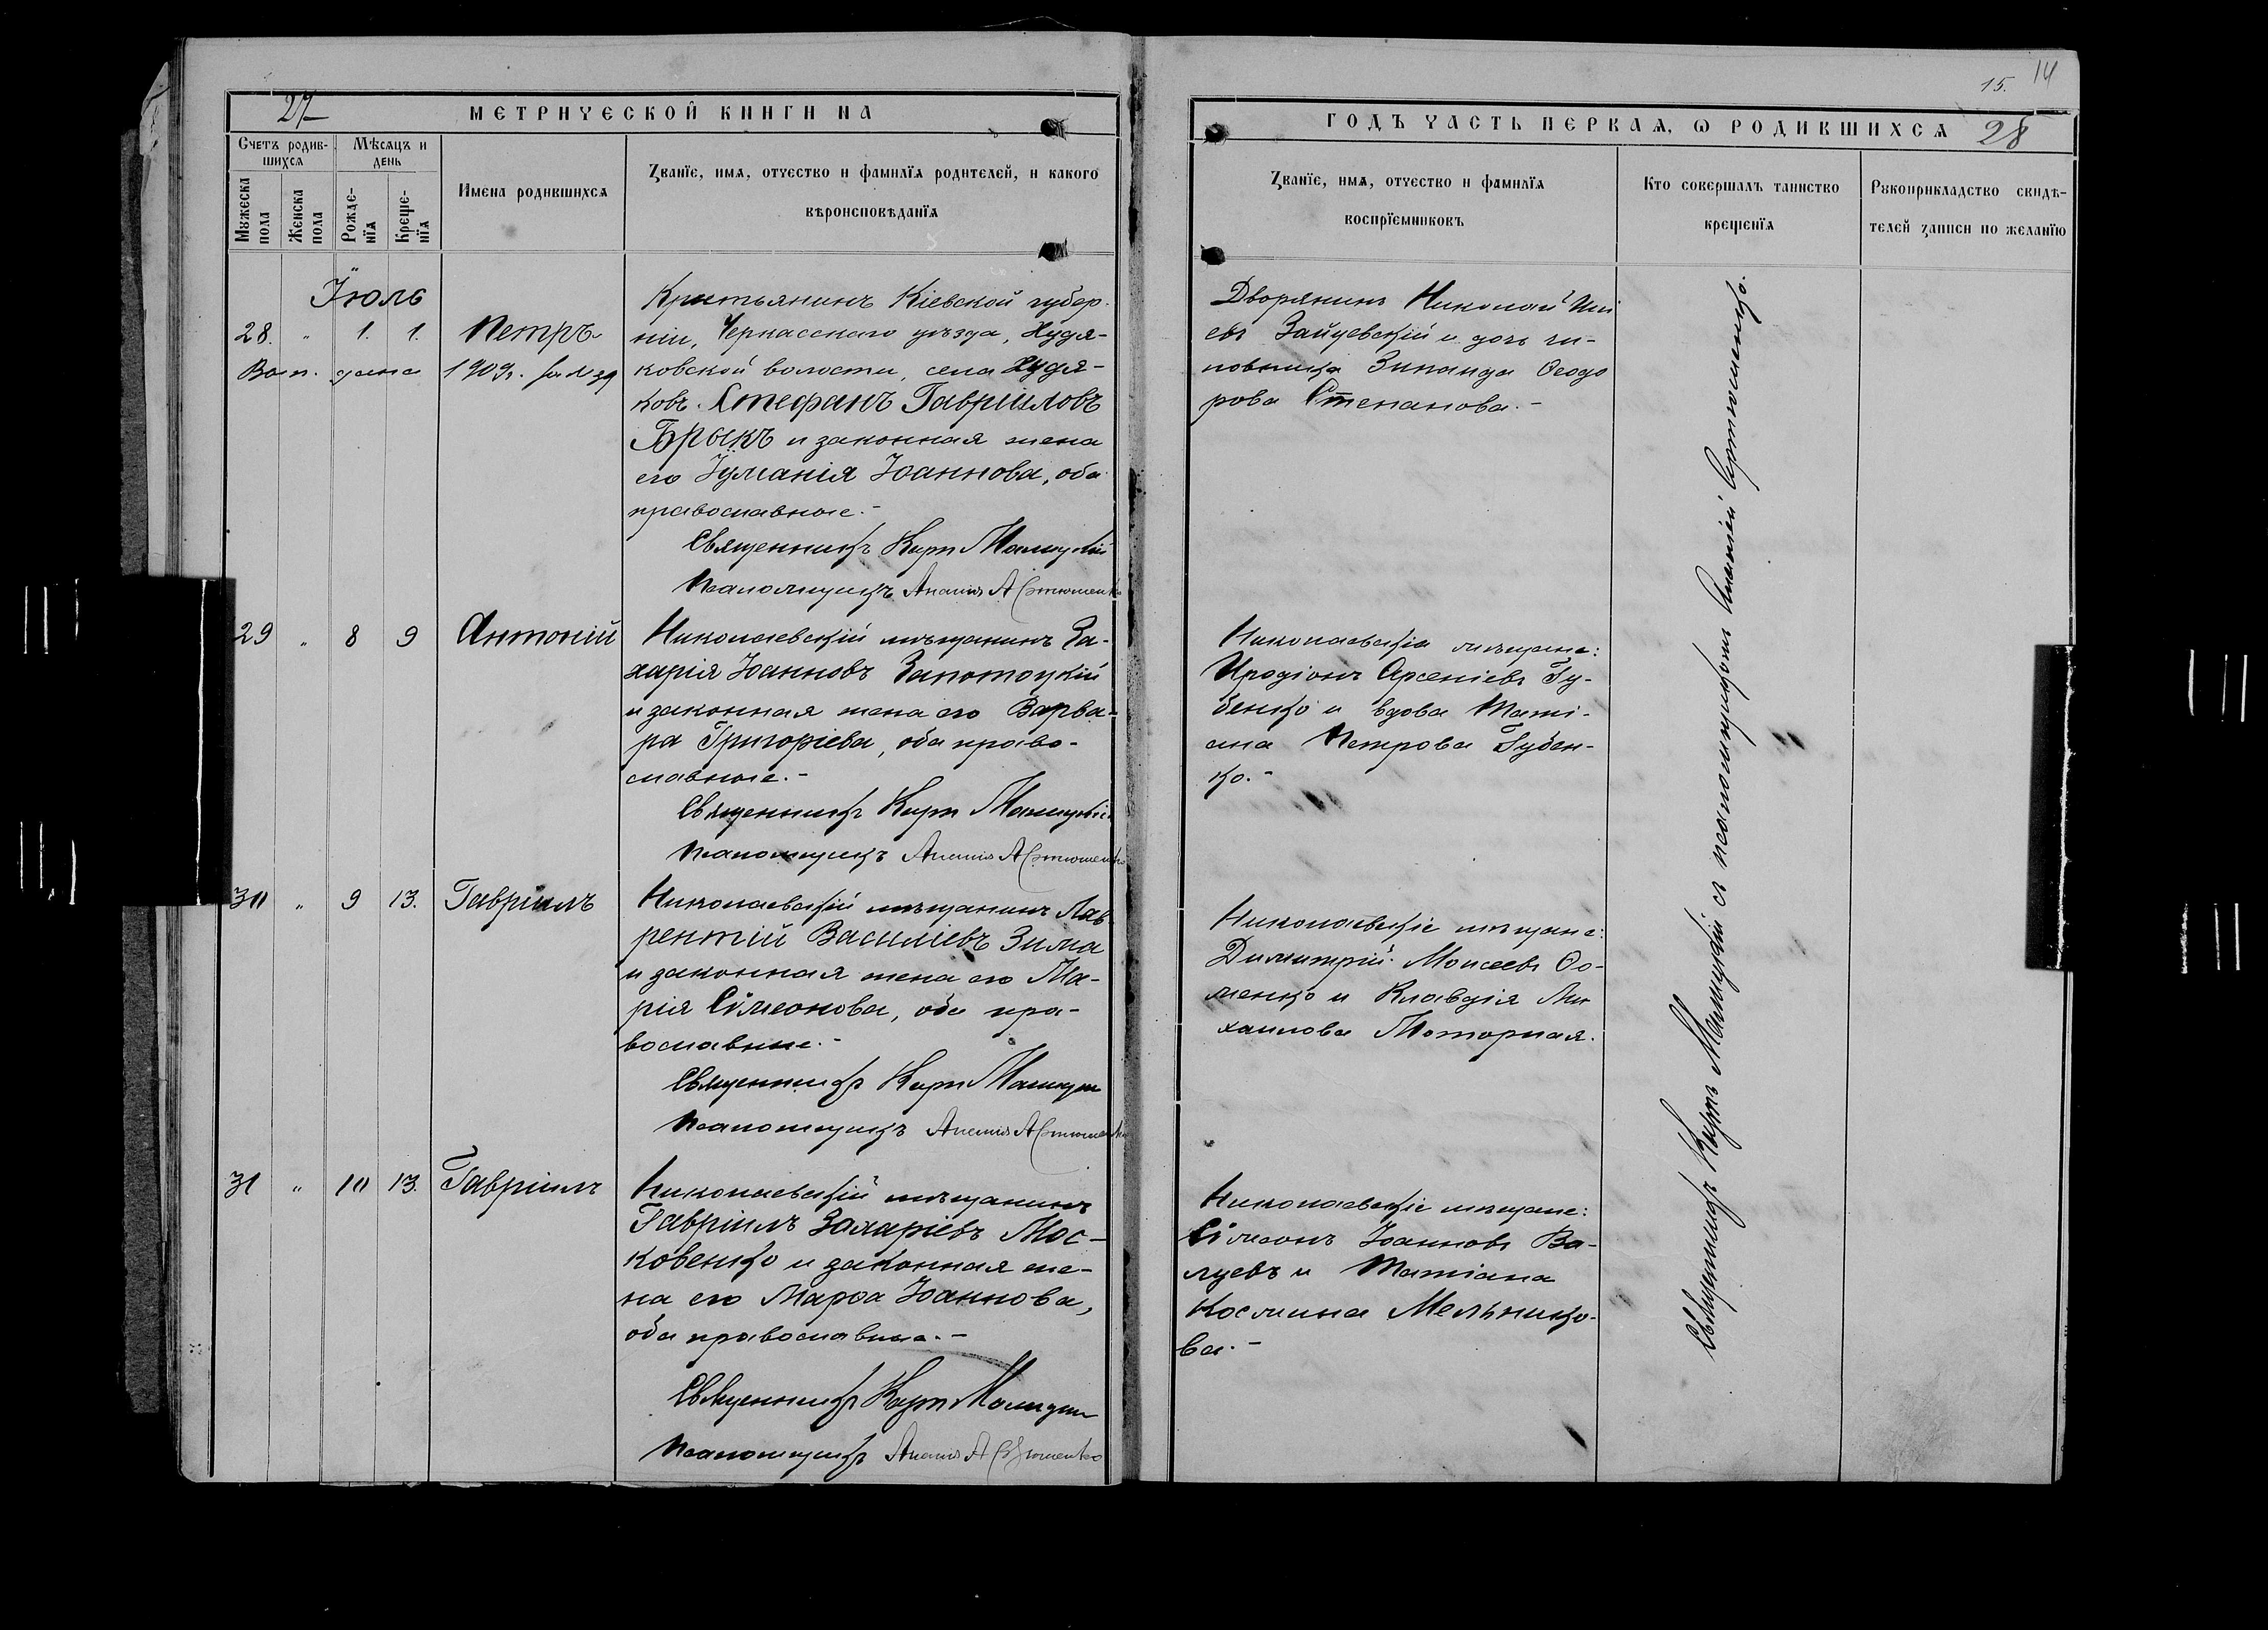 27
МЕТРИЧЕСКОЙ КНИГИ НА
Счетъ родив-
шихся
Мѣсяцъ и
день
Мужеска
пола
Женска
пола
Рожде-
нїя
Креще-
нїя
Имена родившихся
Званїе, имя, отчество и фамилїя родителей, и какого
вѣроисповѣданїя
Іюль
28. " 1. 1. Петръ
Вып. дана 1909г. за №39
Крестьянинъ Кіевской губер-
ніи, Черкасскаго уѣзда, Худя-
ковской волости, села Худя-
ковъ. Стефанъ Гавріиловъ
Брыкъ и законная жена
его Іуліанія Іоаннова, оба
православные.-
Священникъ Киръ Малицкій
Псаломщикъ Ананія Артюменко
29 " 8 9 Антоній
Николаевскій мѣщанинъ За-
харія Іоанновъ Запотоцкій
и законная жена его Варва-
ра Григоріева, оба право-
славные.-
Священникъ Киръ Малицкій
Псаломщикъ Ананія Артюменко
30 " 9 13. Гавріилъ
Николаевскій мѣщанинъ Лав-
рентій Василіевъ Зима
и законная жена его Ма-
рія Сімеонова, оба пра-
вославные.-
Священникъ Киръ Малицкій
Псаломщикъ Ананія Артюменко
31 " 10 13. Гавріилъ
Николаевскій мѣщанинъ
Гавріилъ Захаріевъ Мос-
ковенко и законная же-
на его Марѳа Іоаннова,
оба православные.-
Священникъ Киръ Малицкій
Псаломщикъ Ананія Артюменко
15. 14
ГОДЪ ЧАСТЬ ПЕРВАЯ, Ѡ РОДИВШИХСЯ 28
Званїе, имя, отчество и фамилїя
воспрїемниковъ
Кто совершалъ таинство
крещенїя
Рукоприкладство свидѣ-
телей записи по желанїю
Дворянинъ Николай
евъ Зайцевскій и дочь чи-
новника Зинаида Ѳеодо
рова Степанова.-
Николаевскіе мѣщане:
Иродіонъ Арсеніевъ Гу-
бенко и вдова Таті-
ана Петрова Губен-
ко.-
Николаевскіе мѣщане:
Димитрій Моисеевъ Ѳо-
менко и Клавдія Ми
хаилова Моторная.
Николаевскіе мѣщане:
Сімеонъ Іоанновъ Ва-
луевъ и Татіана
Космина Мельнико-
ва.-
Священникъ Киръ Малицкій съ псаломщикомъ Ананіей Артюменко.